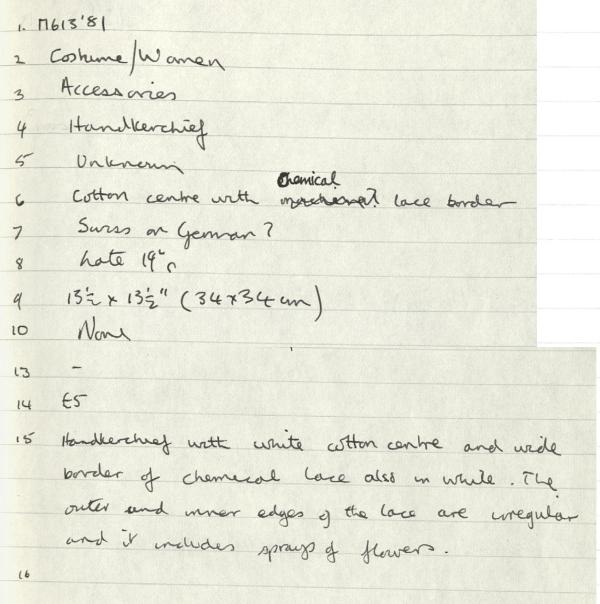 1. M613'81
2 Costume/Women
3 Accessories
4 Handkerchief
5 Unknown
Chemical
6 Cotton centre with lace border
7 Swiss or German?
8 Late 19th c
9 13½ x 13½" (34x34cm)
10 None
13 -
14 £5
15 Handkerchief with white cotton centre and wide
border of chemical lace also in white. The
outer and inner edges of the lace are irregular
and it includes sprays of flowers.
16